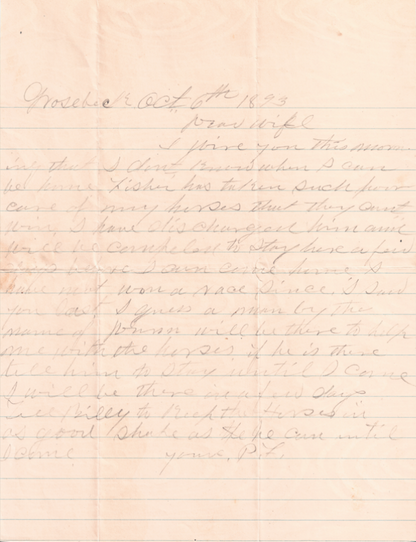 Groesbeck Oct 6th 1893
Dear Wife
I wire you this morn
ing that I dont know when I can
be home Fisher has taken such poor
care of my horses that they cant
win, I have discharged him and
will be compeled to stay here a few
days before I can come home I
have not won a race since I saw
you last I guess a man by the
name of will be there to help
me with the horses if he is there
tell him to stay until I come
I will be there in a few days
tell Billy to Keep the Horses in
as good shape as he can until
I come yours, P.L.